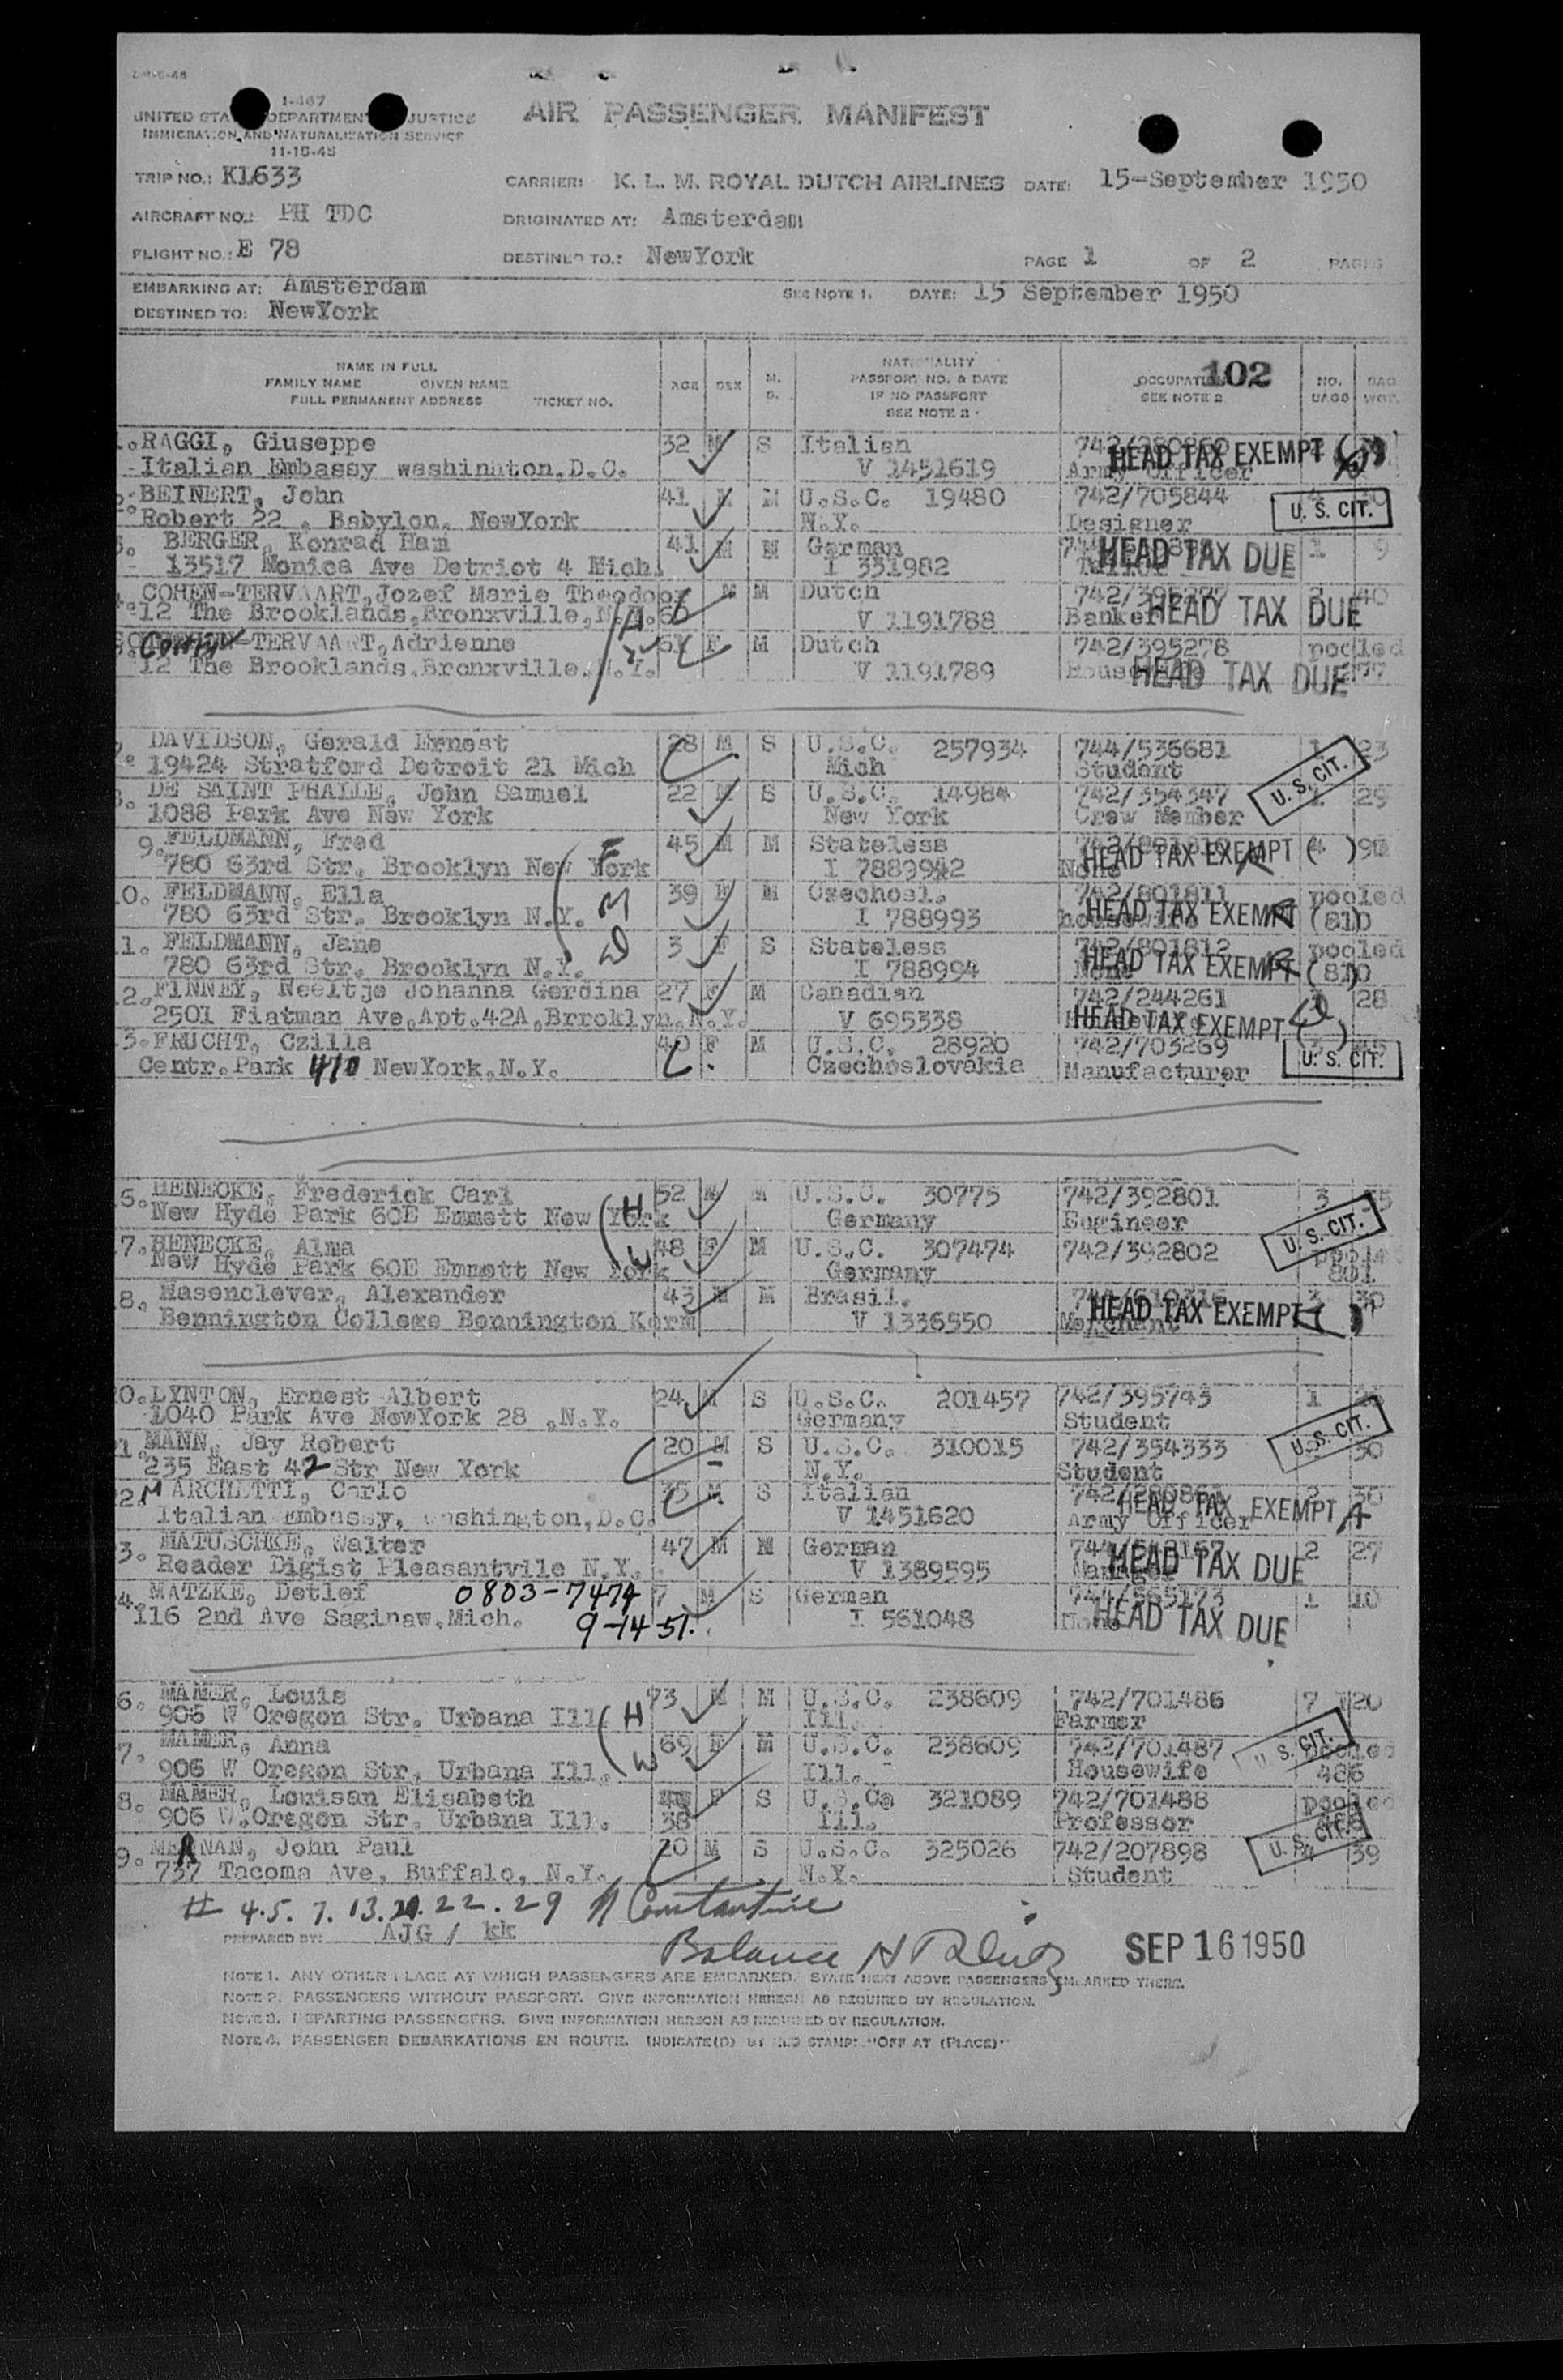 1-467
UNITED STA DEPARTMENT JUSTICE
IMMIGRATION AND NATURALIZATION SERVICE
11-15-45
AIR PASSENGER MANIFEST
TRIP NO.: KL633 CARRIER: K. L. M. ROYAL DUTCH AIRLINES DATE: 15-September 1950
AIRCRAFT NO.: PH TDC ORIGINATED AT: Amsterdam
FLIGHT NO.: E 78 DESTINED TO.: NewYork PAGE 1 OF 2 PAGES
EMBARKING AT: Amsterdam SEE NOTE 1. DATE: 15 September 1950
DESTINED TO: NewYork
NAME IN FULL
FAMILY NAME GIVEN NAME
FULL PERMANENT ADDRESS TICKET NO.
AGE SEX M. S.
NATIONALITY
PASSPORT NO. & DATE
IF NO PASSPORT
SEE NOTE 2
OCCUPATION 102
SEE NOTE 2
NO. BAGS BAG WGT.
1. RAGGI, Giuseppe 32 M S Italian HEAD TAX EXEMPT
Italian Embassy washinnton.D.C. V 1451619 Army Officer
2. BEINERT, John 41 M M U.S.C. 19480 742/705844 4
Robert 22 . Babylon. NewYork N.Y. Designer U. S. CIT.
3. BERGER, Konrad Ham 41 M M German HEAD TAX DUE 1 9
13517 Monica Ave Detriot 4 Mich. I 331982
COHEN-TERVAART,Jozef Marie Theodoor M M Dutch 742/395277 40
12 The Brooklands,Bronxville,N.Y. 60 H V 1191788 Banker HEAD TAX DUE
-TERVAART,Adrienne 61 F M Dutch 742/395278 pooled
12 The Brooklands.Bronxville.N.Y. V 1191789 HEAD TAX DUE 277
7. DAVIDSON, Gerald Ernest 28 M S U.S.C. 257934 744/536681 1 23
19424 Stratford Detroit 21 Mich Mich Student U. S. CIT.
8. DE SAINT PHALLE, John Samuel 22 M S U.S.C. 14984 742/354347 29
1088 Park Ave New York New York Crew Member
9. FELDMANN, Fred 45 M M Stateless
780 63rd Str. Brooklyn New York F I 788992 None HEAD TAX EXEMPT
10. FELDMANN, Ella 39 F M Czechosl. 742/801811 pooled
780 63rd Str. Brooklyn N.Y. M I 788993 housewife HEAD TAX EXEMPT (810
11. FELDMANN, Jane 3 F S Stateless 742/801812 pooled
780 63rd Str. Brooklyn N.Y. D I 788994 None HEAD TAX EXEMPT (810
12. FINNEY, Neeltje Johanna Gerdina 27 F M Canadian 742/244261 28
2501 Fiatman Ave,Apt.42A,Brroklyn.N.Y. V 695338 HEAD TAX EXEMPT
13. FRUCHT, Czilla 40 F M U.S.C. 28920 742/703269 3
Centr.Park 410 NewYork.N.Y. Czechoslovakia Manufacturer U. S. CIT.
HENECKE, Frederick Carl 52 M M U.S.C. 30775 742/392801 3 35
New Hyde Park 60E Emmett New York H Germany Engineer U. S. CIT.
17. HENECKE, Alma 48 F M U.S.C. 307474 742/392802
New Hyde Park 60E Emmett New York W Germany 801
18. Hasenclever, Alexander 43 M M Brasil. 3 30
Bennington College Bennington V 1336550 Merchant HEAD TAX EXEMPT
20. LYNTON, Ernest Albert 24 M S U.S.C. 201457 742/395743 1
1040 Park Ave NewYork 28 ,N.Y. Germany Student U. S. CIT.
21. MANN, Jay Robert 20 M S U.S.C. 310015 742/354333 30
235 East 42 Str New York N.Y. Student
22. MARCHETTI, Carlo 35 M S Italian 2 30
Italian Embassy, Washington,D.C. V 1451620 Army Officer HEAD TAX EXEMPT
23. MATUSCHKE, Walter 47 M M German 2 27
Reader Digist Pleasantvile N.Y. V 1389595 HEAD TAX DUE
24. MATZKE, Detlef 0803-7474 7 M S German 744/565173 1 10
116 2nd Ave Saginaw,Mich. 9-14-51. I 561048 None HEAD TAX DUE
26. MAMER, Louis 73 M M U.S.C. 238609 742/701486 7 120
906 W Oregon Str. Urbana Ill. H Ill. Farmer
27. MAMER, Anna 69 F M U.S.C. 238609 742/701487 pooled
906 W Oregon Str. Urbana Ill. W Ill. Housewife U. S. CIT. 486
28. MAMER, Louisan Elisabeth F S U.S.C. 321089 742/701488 pooled
906 W.Oregon Str. Urbana Ill. 38 Ill. Professor
29. NAN, John Paul 20 M S U.S.C. 325026 742/207898 4 39
737 Tacoma Ave, Buffalo, N.Y. N.Y. Student U. S. CIT.
# 4.5. 7. 13. 22. 29 Constantine
PREPARED BY: AJG / kk
Balance SEP 16 1950
NOTE 1. ANY OTHER PLACE AT WHICH PASSENGERS ARE EMBARKED. STATE NEXT ABOVE PASSENGERS EMBARKED THERE.
NOTE 2. PASSENGERS WITHOUT PASSPORT. GIVE INFORMATION HEREON AS REQUIRED BY REGULATION.
NOTE 3. DEPARTING PASSENGERS. GIVE INFORMATION HEREON AS REQUIRED BY REGULATION.
NOTE 4. PASSENGER DEBARKATIONS EN ROUTE. INDICATE(D) BY RED STAMP: "OFF AT (PLACE)"